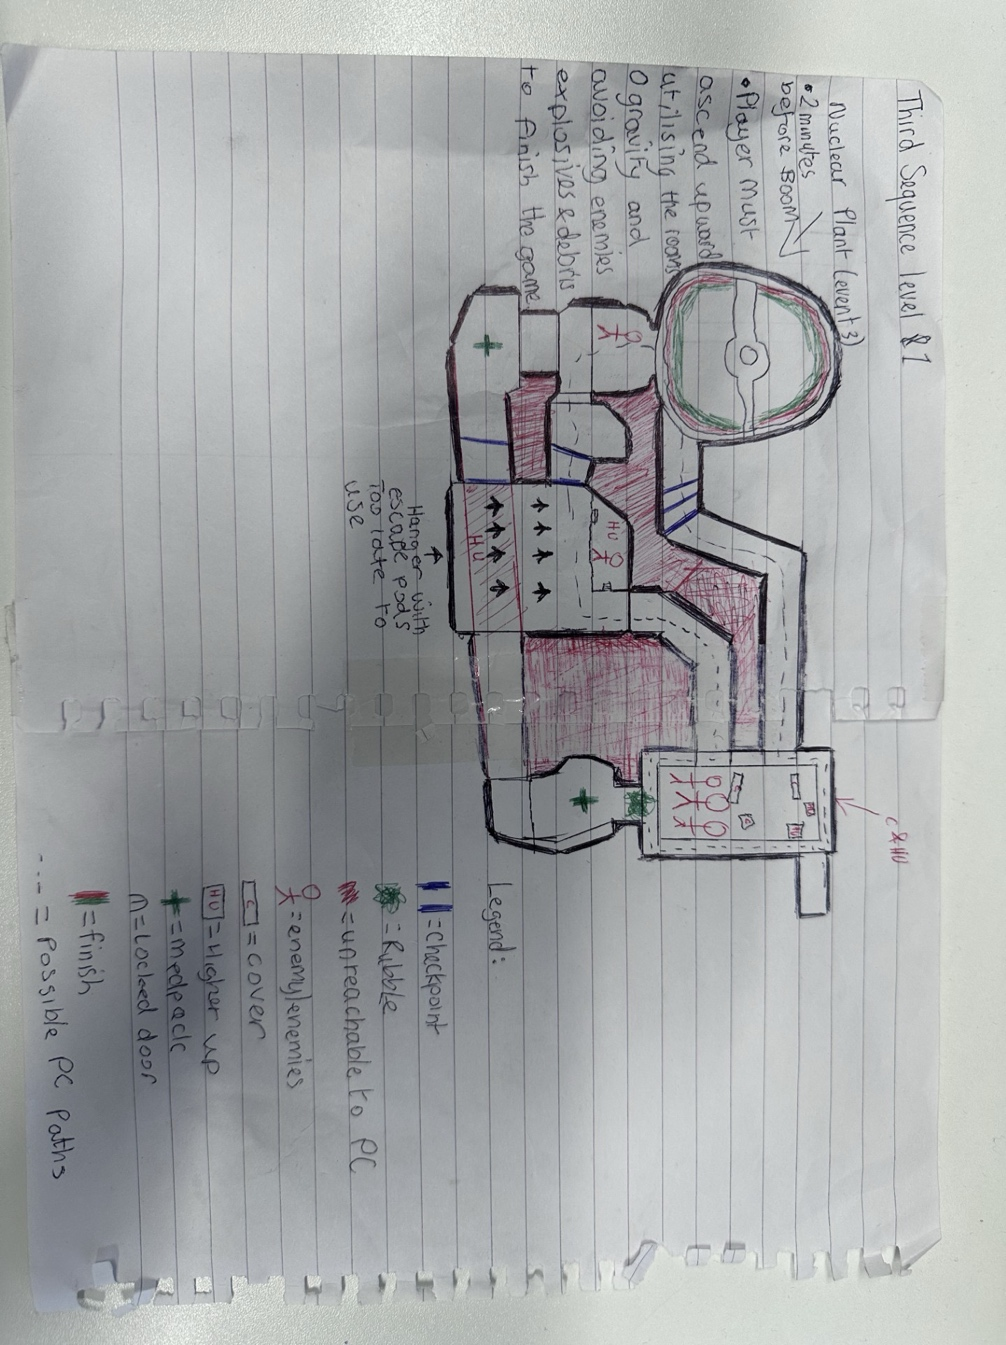 Third Sequence level 1
Nuclear Plant (event 3)
• 2 minutes
before BOOM
• Player must
ascend upward
utilising the rooms
0 gravity and
avoiding enemies
explosives & debris
to finish the game.
HU
HU
Hanger with
escape pods
Too late to
use
C & HU
C
C
HU
HU
Legend:
= checkpoint
= Rubble
= unreachable to PC
= enemy/enemies
C = cover
HU = Higher up
= medpack
n = Locked door
= finish
--- = Possible PC paths